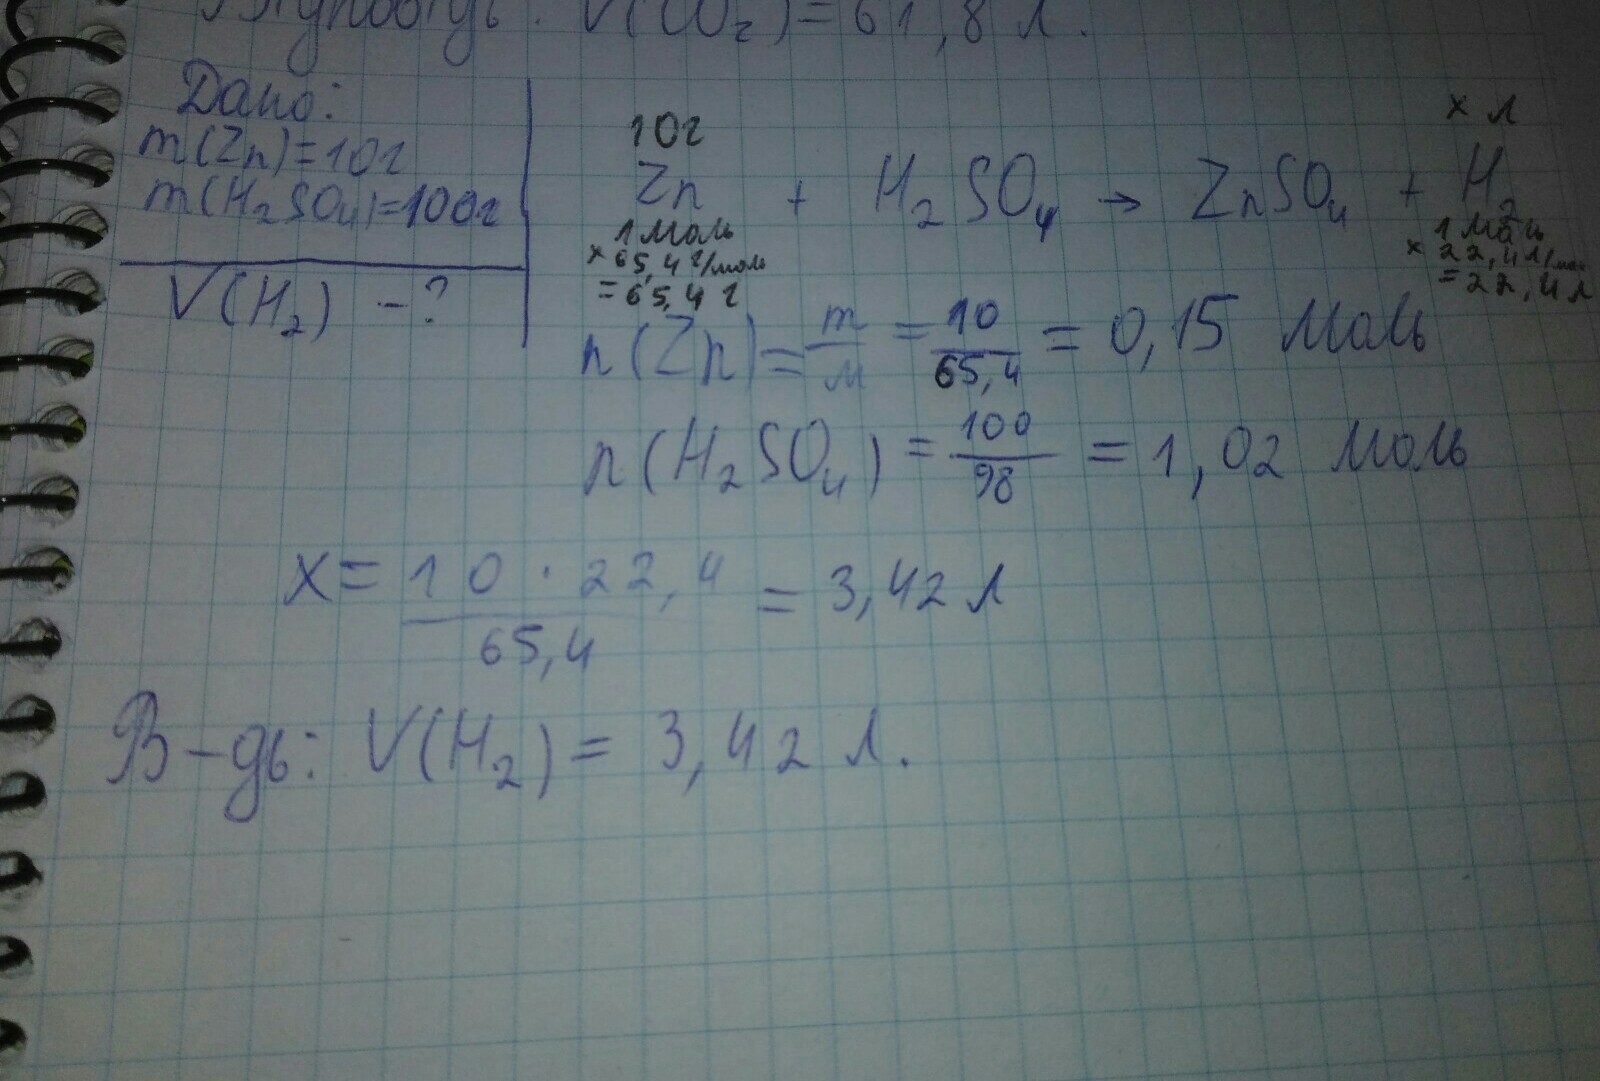 V(CO₂) = 61,8 л.
Дано:
m(Zn)=10г
m(H₂SO₄)=100г
V(H₂) - ?
10г
x л
Zn + H₂SO₄ → ZnSO₄ + H₂
1 моль
x 65,4 г/моль
= 65,4 г
1 моль
x 22,4 л/моль
= 22,4 л
n(Zn) = m/м = 10/65,4 = 0,15 моль
n(H₂SO₄) = 100/98 = 1,02 моль
x = 10 · 22,4/65,4 = 3,42 л
В-дь: V(H₂) = 3,42 л.